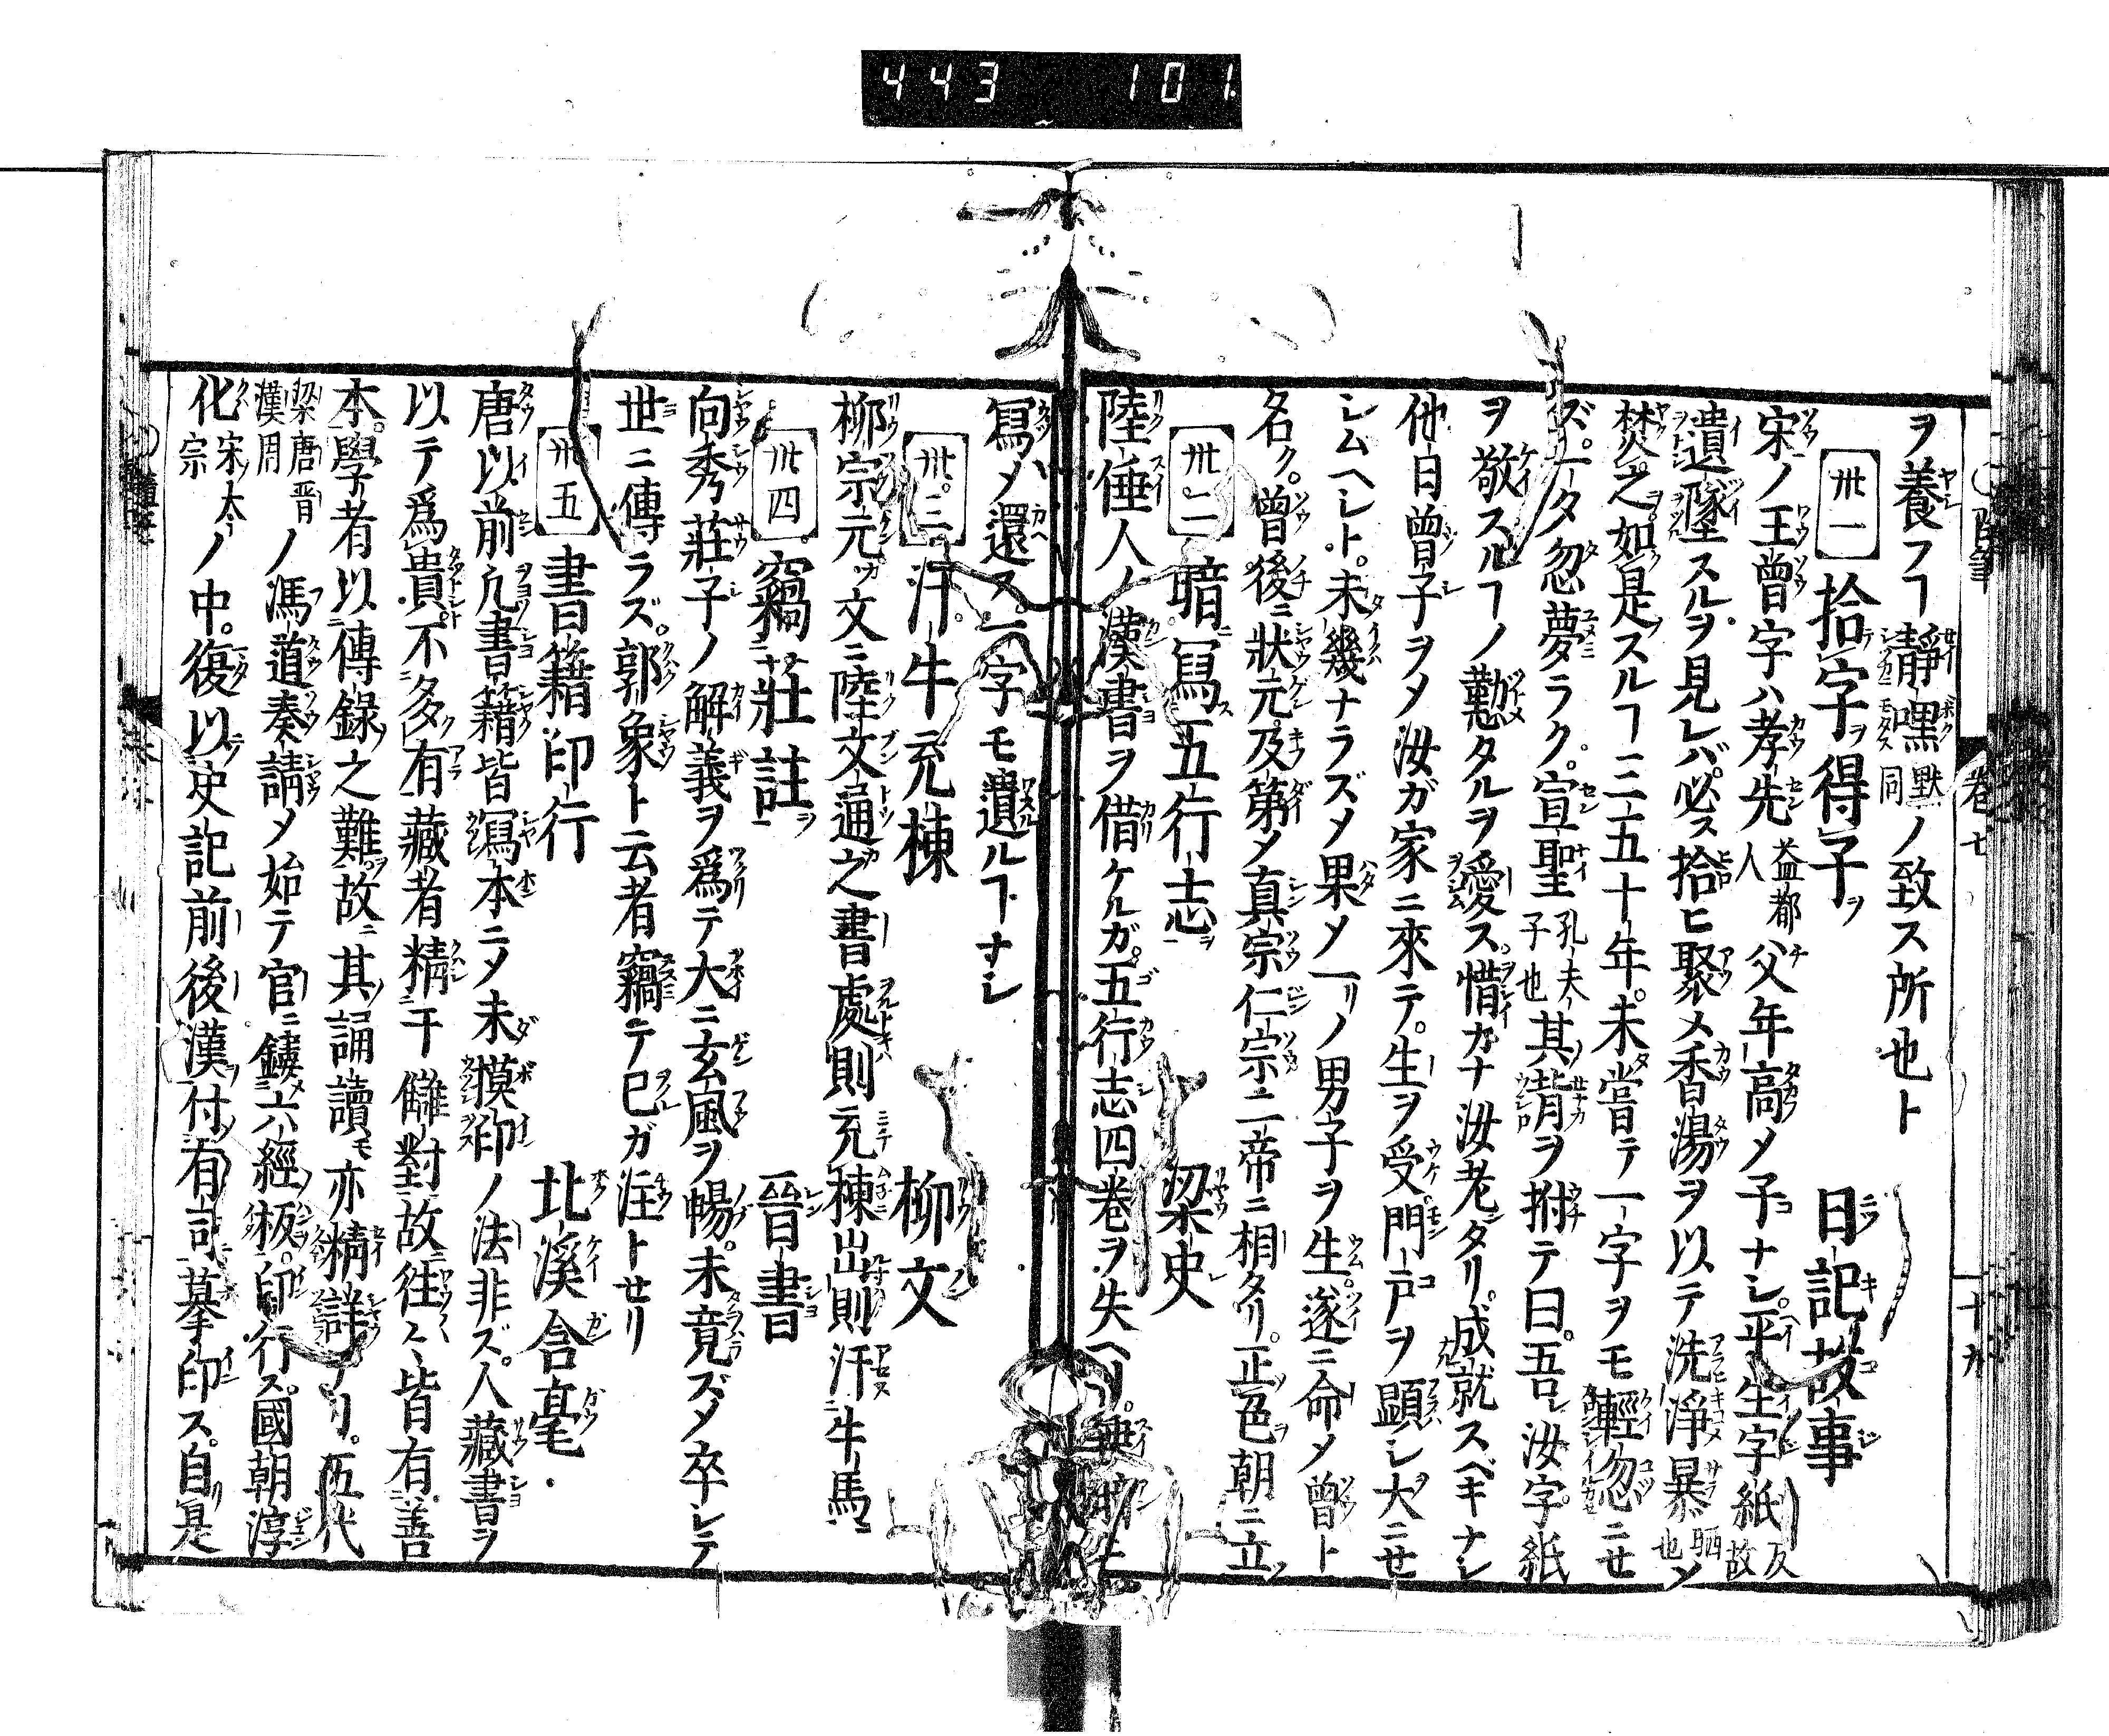 443 101
卷七
十九
ヲ養フ┐靜嘿默同ノ致ス所也ト
卅一 拾字ヲ得子ヲ 日記故事
宋ノ王曾字ハ孝先益都人父年高メ子ナシ。平生字紙反故
遺墜スルヲ見レバ必ス拾ヒ聚メ香湯ヲ以テ洗淨暴晒也ソ
焚之。如是スルフ┐三五十年。未嘗テ一字ヲモ輕忽ニセ
ズ。一タ忽夢ラク。宣聖孔夫子也其背ヲ拊テ曰。吾レ汝字紙
ヲ敬スル┐ノ懃タルヲ愛ス。惜カナ汝老タリ。成就スベキナシ
他日曾子ヲメ汝ガ家ニ來テ。生ヲ受門戸ヲ顯シ大ニセ
シムヘシト。未幾ナラズメ果メ一リノ男子ヲ生。遂ニ命メ曾ト
名ク。曾後ニ狀元及第メ真宗仁宗二帝ニ相タリ。正色朝ニ立
卅二 暗冩五行志ヲ 梁史
陸倕人ノ漢書ヲ借ケルガ。五行志四卷ヲ失ヘリ。
冩メ還ス。一字モ遺ル┐ナシ
卅三 汗牛充棟 柳文
柳宗元カ文ニ陸文通之書處則充棟出則汗牛馬
卅四 竊莊註ヲ 晉書
向秀莊子ノ解義ヲ爲テ大ニ玄風ヲ暢。未竟ズメ卒シテ
世ニ傳ラズ。郭象ト云者竊テ已ガ注トせリ
卅五 書籍印行 北溪含毫
唐以前凢書籍皆寫本ニメ未摸印ノ法非ズ。人藏書ヲ
以テ爲貴。不多有藏者精于讎對故往〻皆有善
本。學者有以傳錄之難故。其誦讀モ亦精詳ナリ。五代
梁唐晋漢周ノ馮道奏請メ始テ官ニ鏤六經板。印行ス。國朝淳
化宋ノ太宗ノ中。復以史記前後漢付有司摹印ス。自是